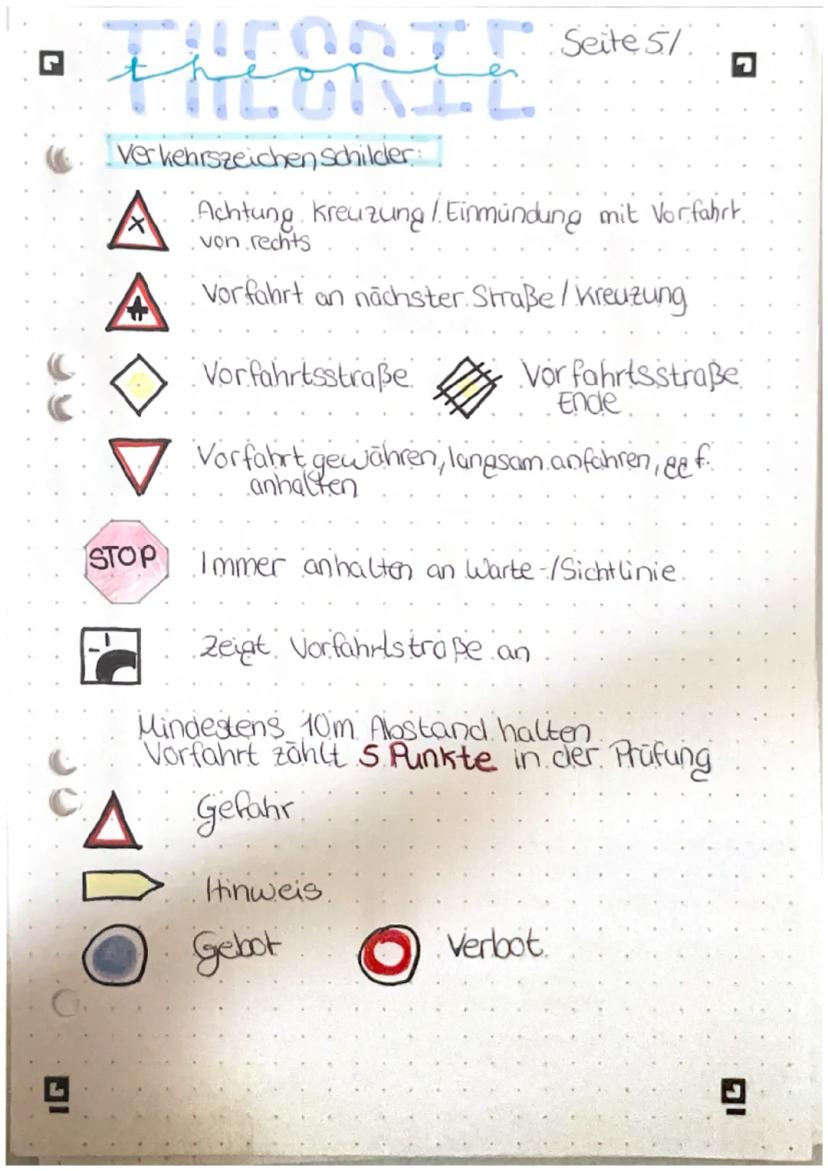 THEORIE
theorie
Seite 5/
Verkehrszeichenschilder:
Achtung Kreuzung / Einmündung mit Vorfahrt
von rechts
Vorfahrt an nächster Straße / Kreuzung
Vorfahrtsstraße
Vorfahrtsstraße
Ende
Vorfahrt gewähren, langsam anfahren, ggf.
anhalten
STOP
Immer anhalten an Warte-/Sichtlinie
zeigt Vorfahrtstraße an
Mindestens 10m Abstand halten
Vorfahrt zählt 5 Punkte in der Prüfung
Gefahr
Hinweis
Gebot
Verbot